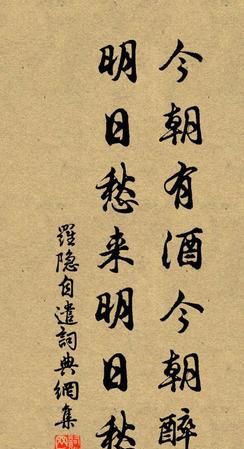 今朝有酒今朝醉
明日愁来明日愁
羅隐自遣詞典網集